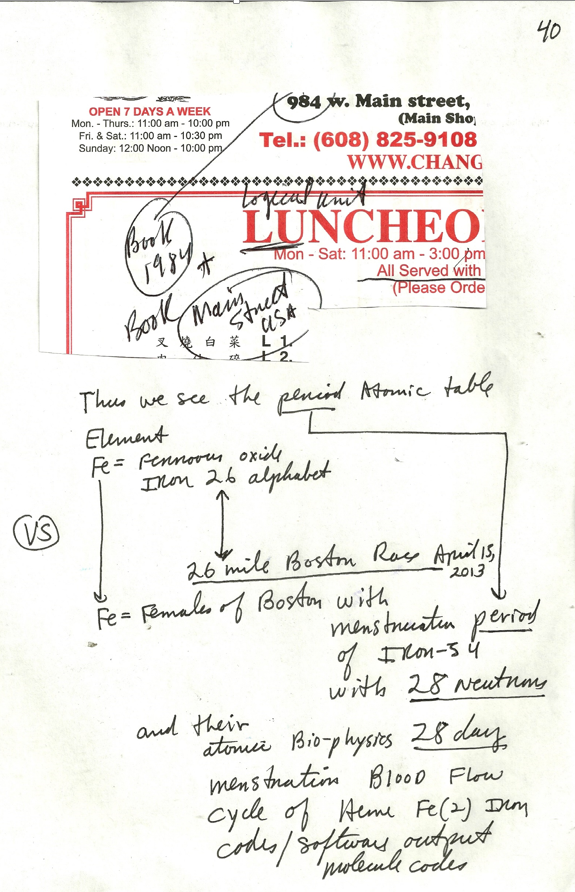 40
OPEN 7 DAYS A WEEK
Mon. - Thurs.: 11:00 am - 10:00 pm
Fri. & Sat.: 11:00 am - 10:30 pm
Sunday: 12:00 Noon - 10:00 pm
984 w. Main street,
(Main Sho
Tel.: (608) 825-9108
WWW.CHANG
Logical unit
LUNCHEO
Mon - Sat: 11:00 am - 3:00 pm
All Served with
(Please Orde
Book
1984
Book Main
Street
USA
叉 燒 白 菜 L 1.
L 2.
Thus we see the period Atomic table
Element
Fe = Ferrous oxide
Iron 26 alphabet
VS
26 mile Boston Race April 15,
2013
Fe = Females of Boston with
menstruation period
of Iron-54
with 28 neutrons
and their
atomic Bio-physics 28 day
menstruation Blood Flow
cycle of Heme Fe(2) Iron
codes/software output
molecule codes